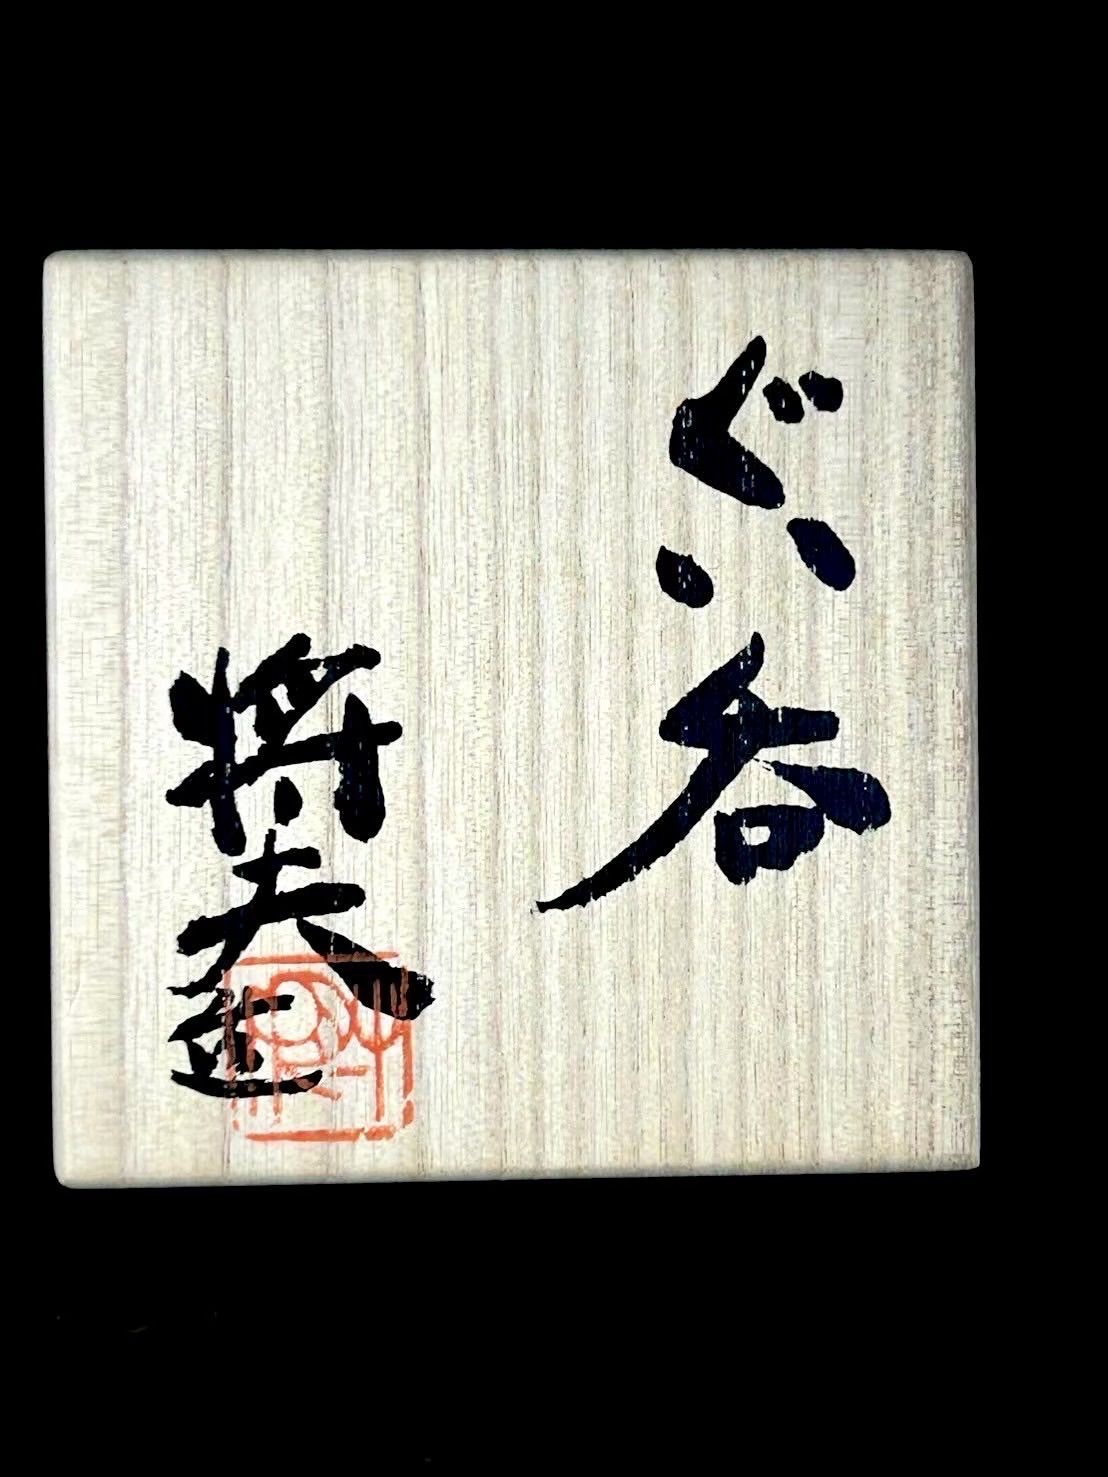 ぐい呑
将夫造